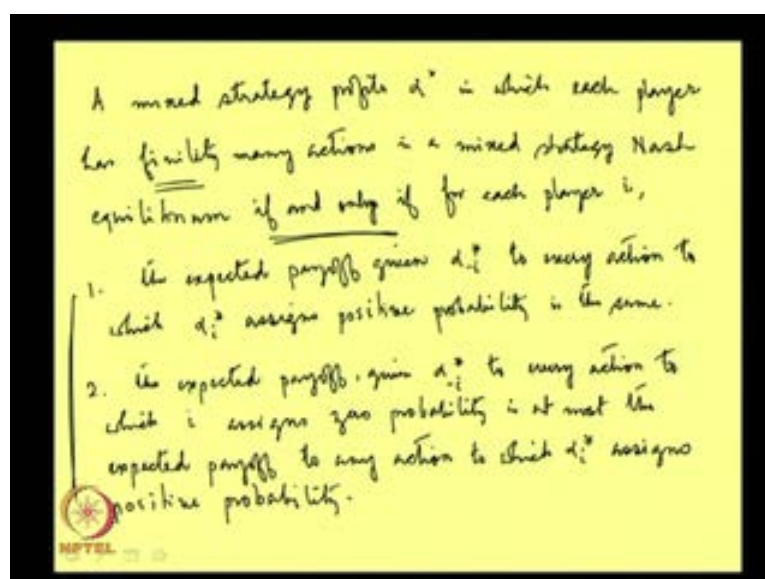 A mixed strategy profile α* in which each player
has finitely many actions is a mixed strategy Nash
equilibrium if and only if for each player i,
1. the expected payoff given α₋ᵢ* to every action to
which αᵢ* assigns positive probability is the same.
2. the expected payoff, given α₋ᵢ* to every action to
which i assigns zero probability is at most the
expected payoff to any action to which αᵢ* assigns
positive probability.
NPTEL